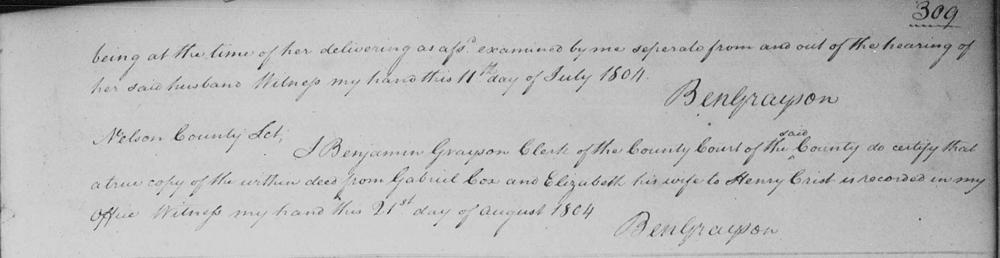 309
being at the time of her delivering as afsd. examined by me seperate from and out of the hearing of
her said husband Witness my hand this 11th day of July 1804.
Ben Grayson
Nelson County Sct,
I Benjamin Grayson Clerk of the County Court of the said County do certify that
a true copy of the within deed from Gabriel Cox and Elizabeth his wife to Henry Crist is recorded in my
Office Witness my hand this 21st day of August 1804
Ben Grayson